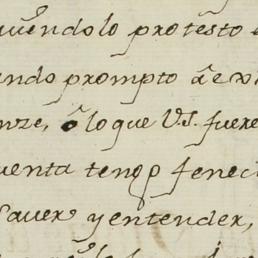 viendolo protesto
ando prompto
nze, ò lo que V.S. fuere
uenta tengo fenec
Sauer y entender,